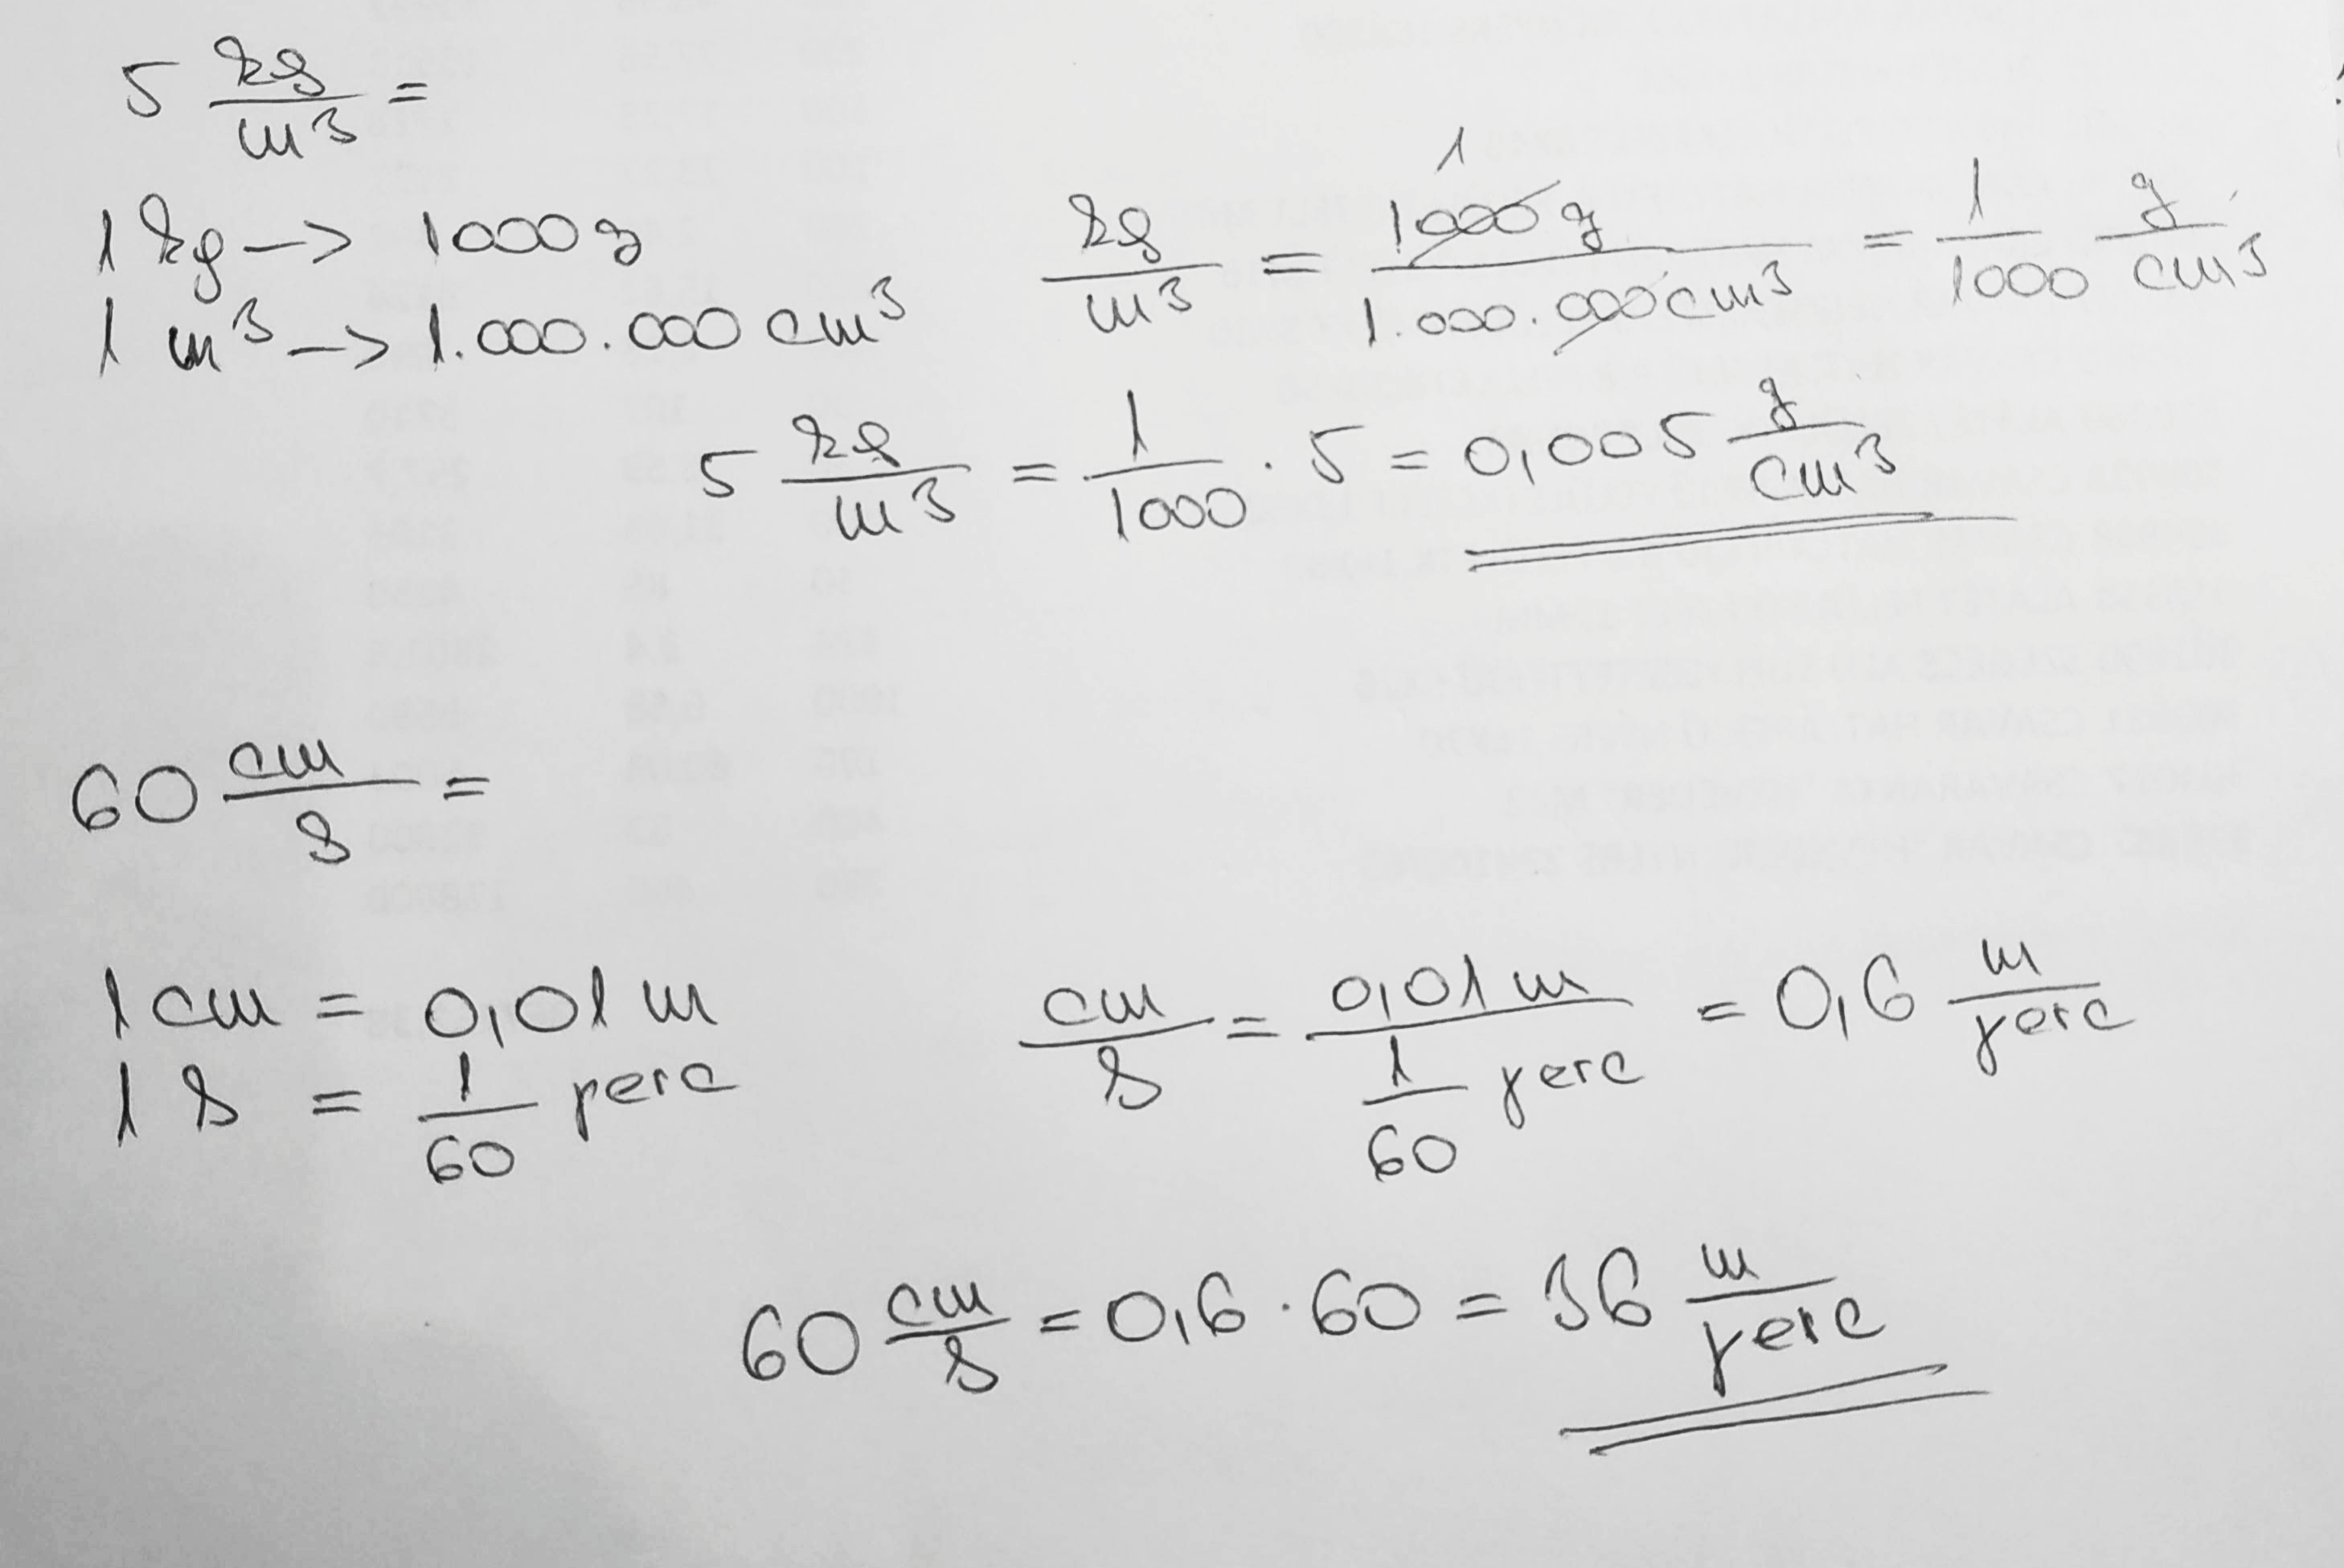 5 kg/m³ =
1 kg -> 1000 g
1 m³ -> 1.000.000 cm³
kg/m³ = 1000 g / 1.000.000 cm³ = 1/1000 g/cm³
1
5 kg/m³ = 1/1000 · 5 = 0,005 g/cm³
60 cm/s =
1 cm = 0,01 m
1 s = 1/60 perc
cm/s = 0,01 m / 1/60 perc = 0,6 m/perc
60 cm/s = 0,6 · 60 = 36 m/perc